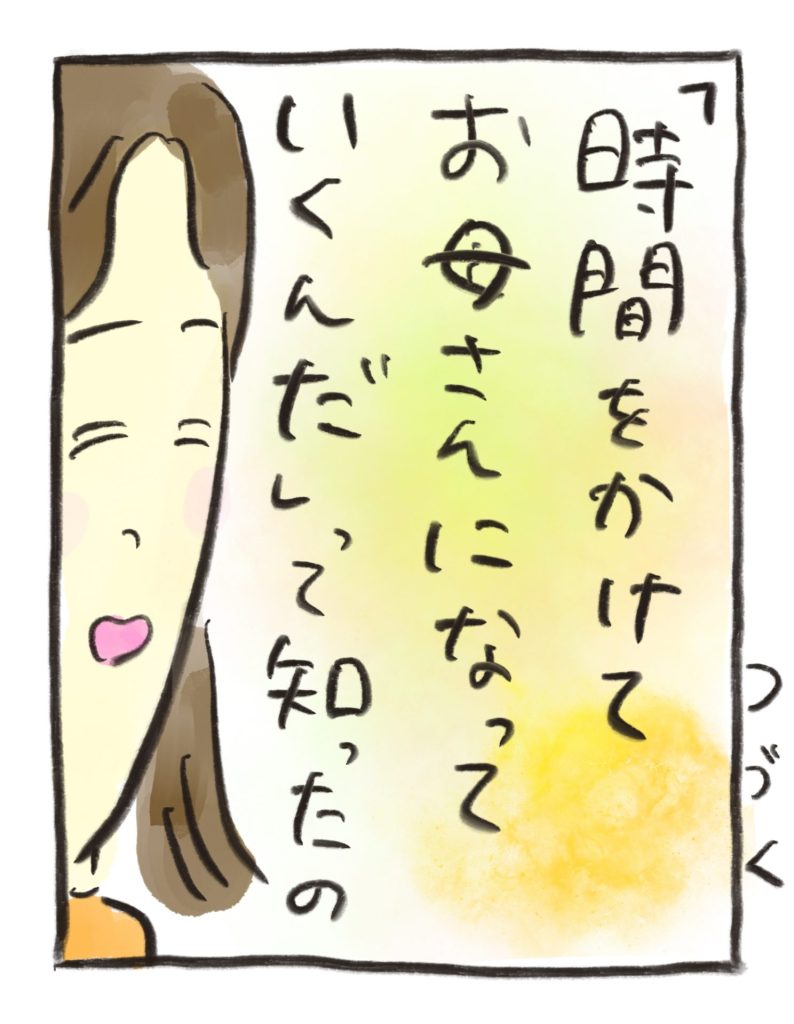 「時間をかけて
お母さんになって
いくんだ」って知ったの
つづく